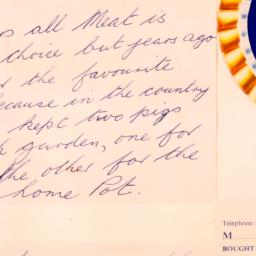 all Meat is
choice but years ago
the favourite
because in the country
kept two pigs
garden, one for
the other for the
home Pot.
Telephone
M
BOUGHT